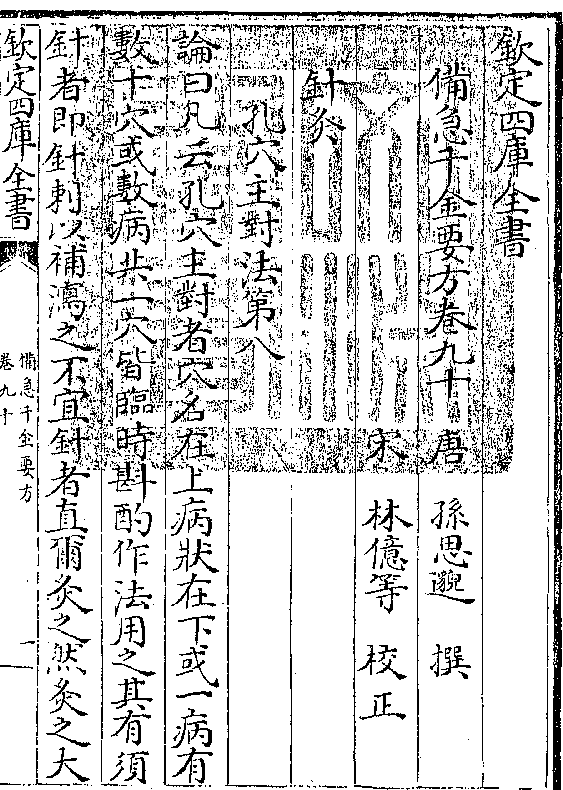 欽定四庫全書
備急千金要方卷九十　唐　孫思邈　撰
宋　林億等　校正
針灸
孔穴主對法第八
論曰凡云孔穴主對者穴名在上病狀在下或一病有
數十穴或數病共一穴皆臨時斟酌作法用之其有須
針者即針刺以補瀉之不宜針者直爾灸之然灸之大
欽定四庫全書
備急千金要方
卷九十
一